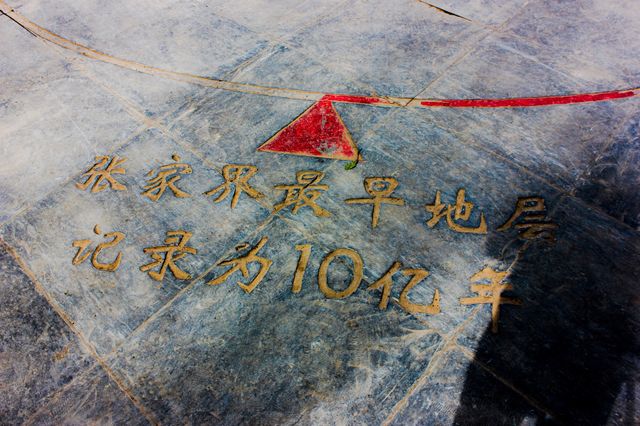 张家界最早地层
记录为10亿年